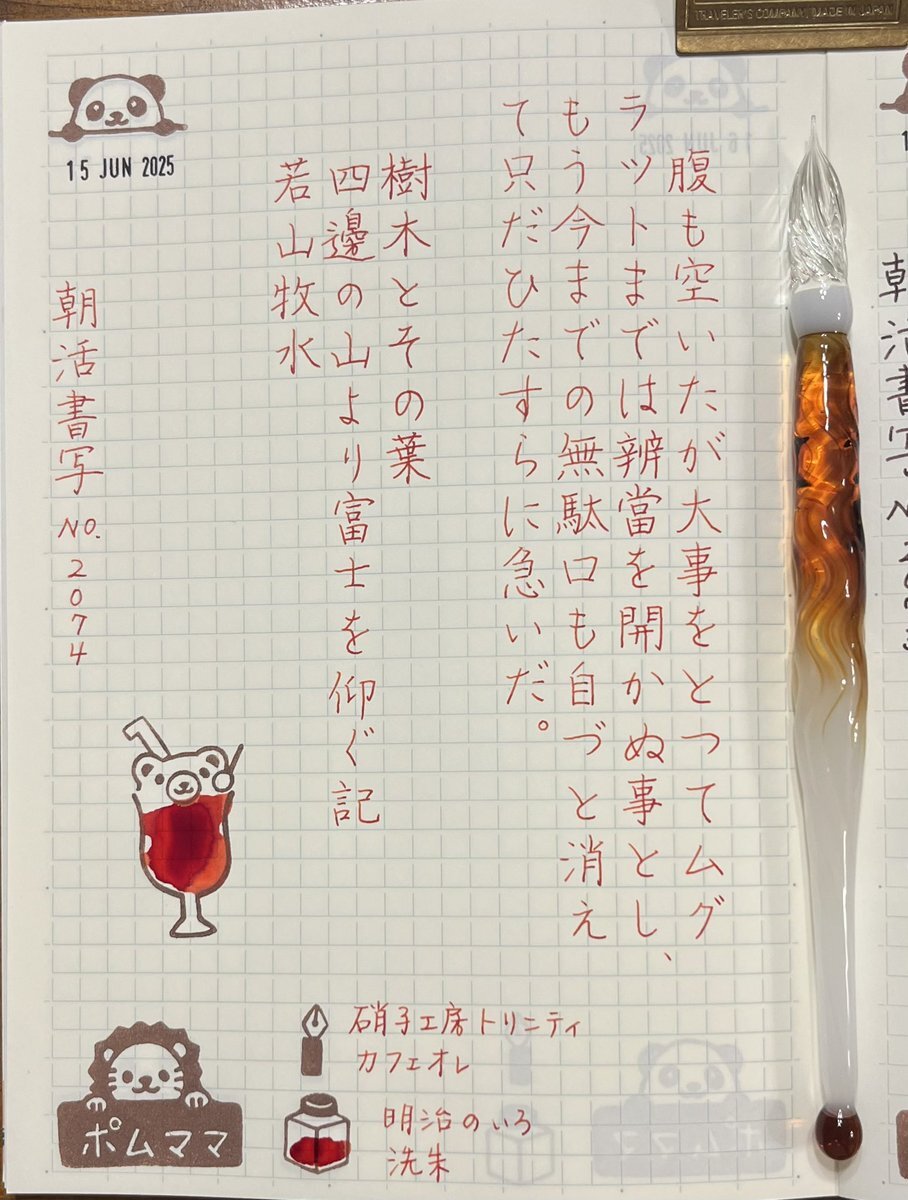 TRAVELER'S COMPANY, MADE IN JAPAN
15 JUN 2025
腹も空いたが大事をとつてムグ
ラツトまでは辨當を開かぬ事とし、
もう今までの無駄口も自づと消え
て只だひたすらに急いだ。
樹木とその葉
四邊の山より富士を仰ぐ記
若山牧水
朝活書写 NO. 2074
硝子工房トリニティ
カフェオレ
明治のいろ
洗朱
ポムママ